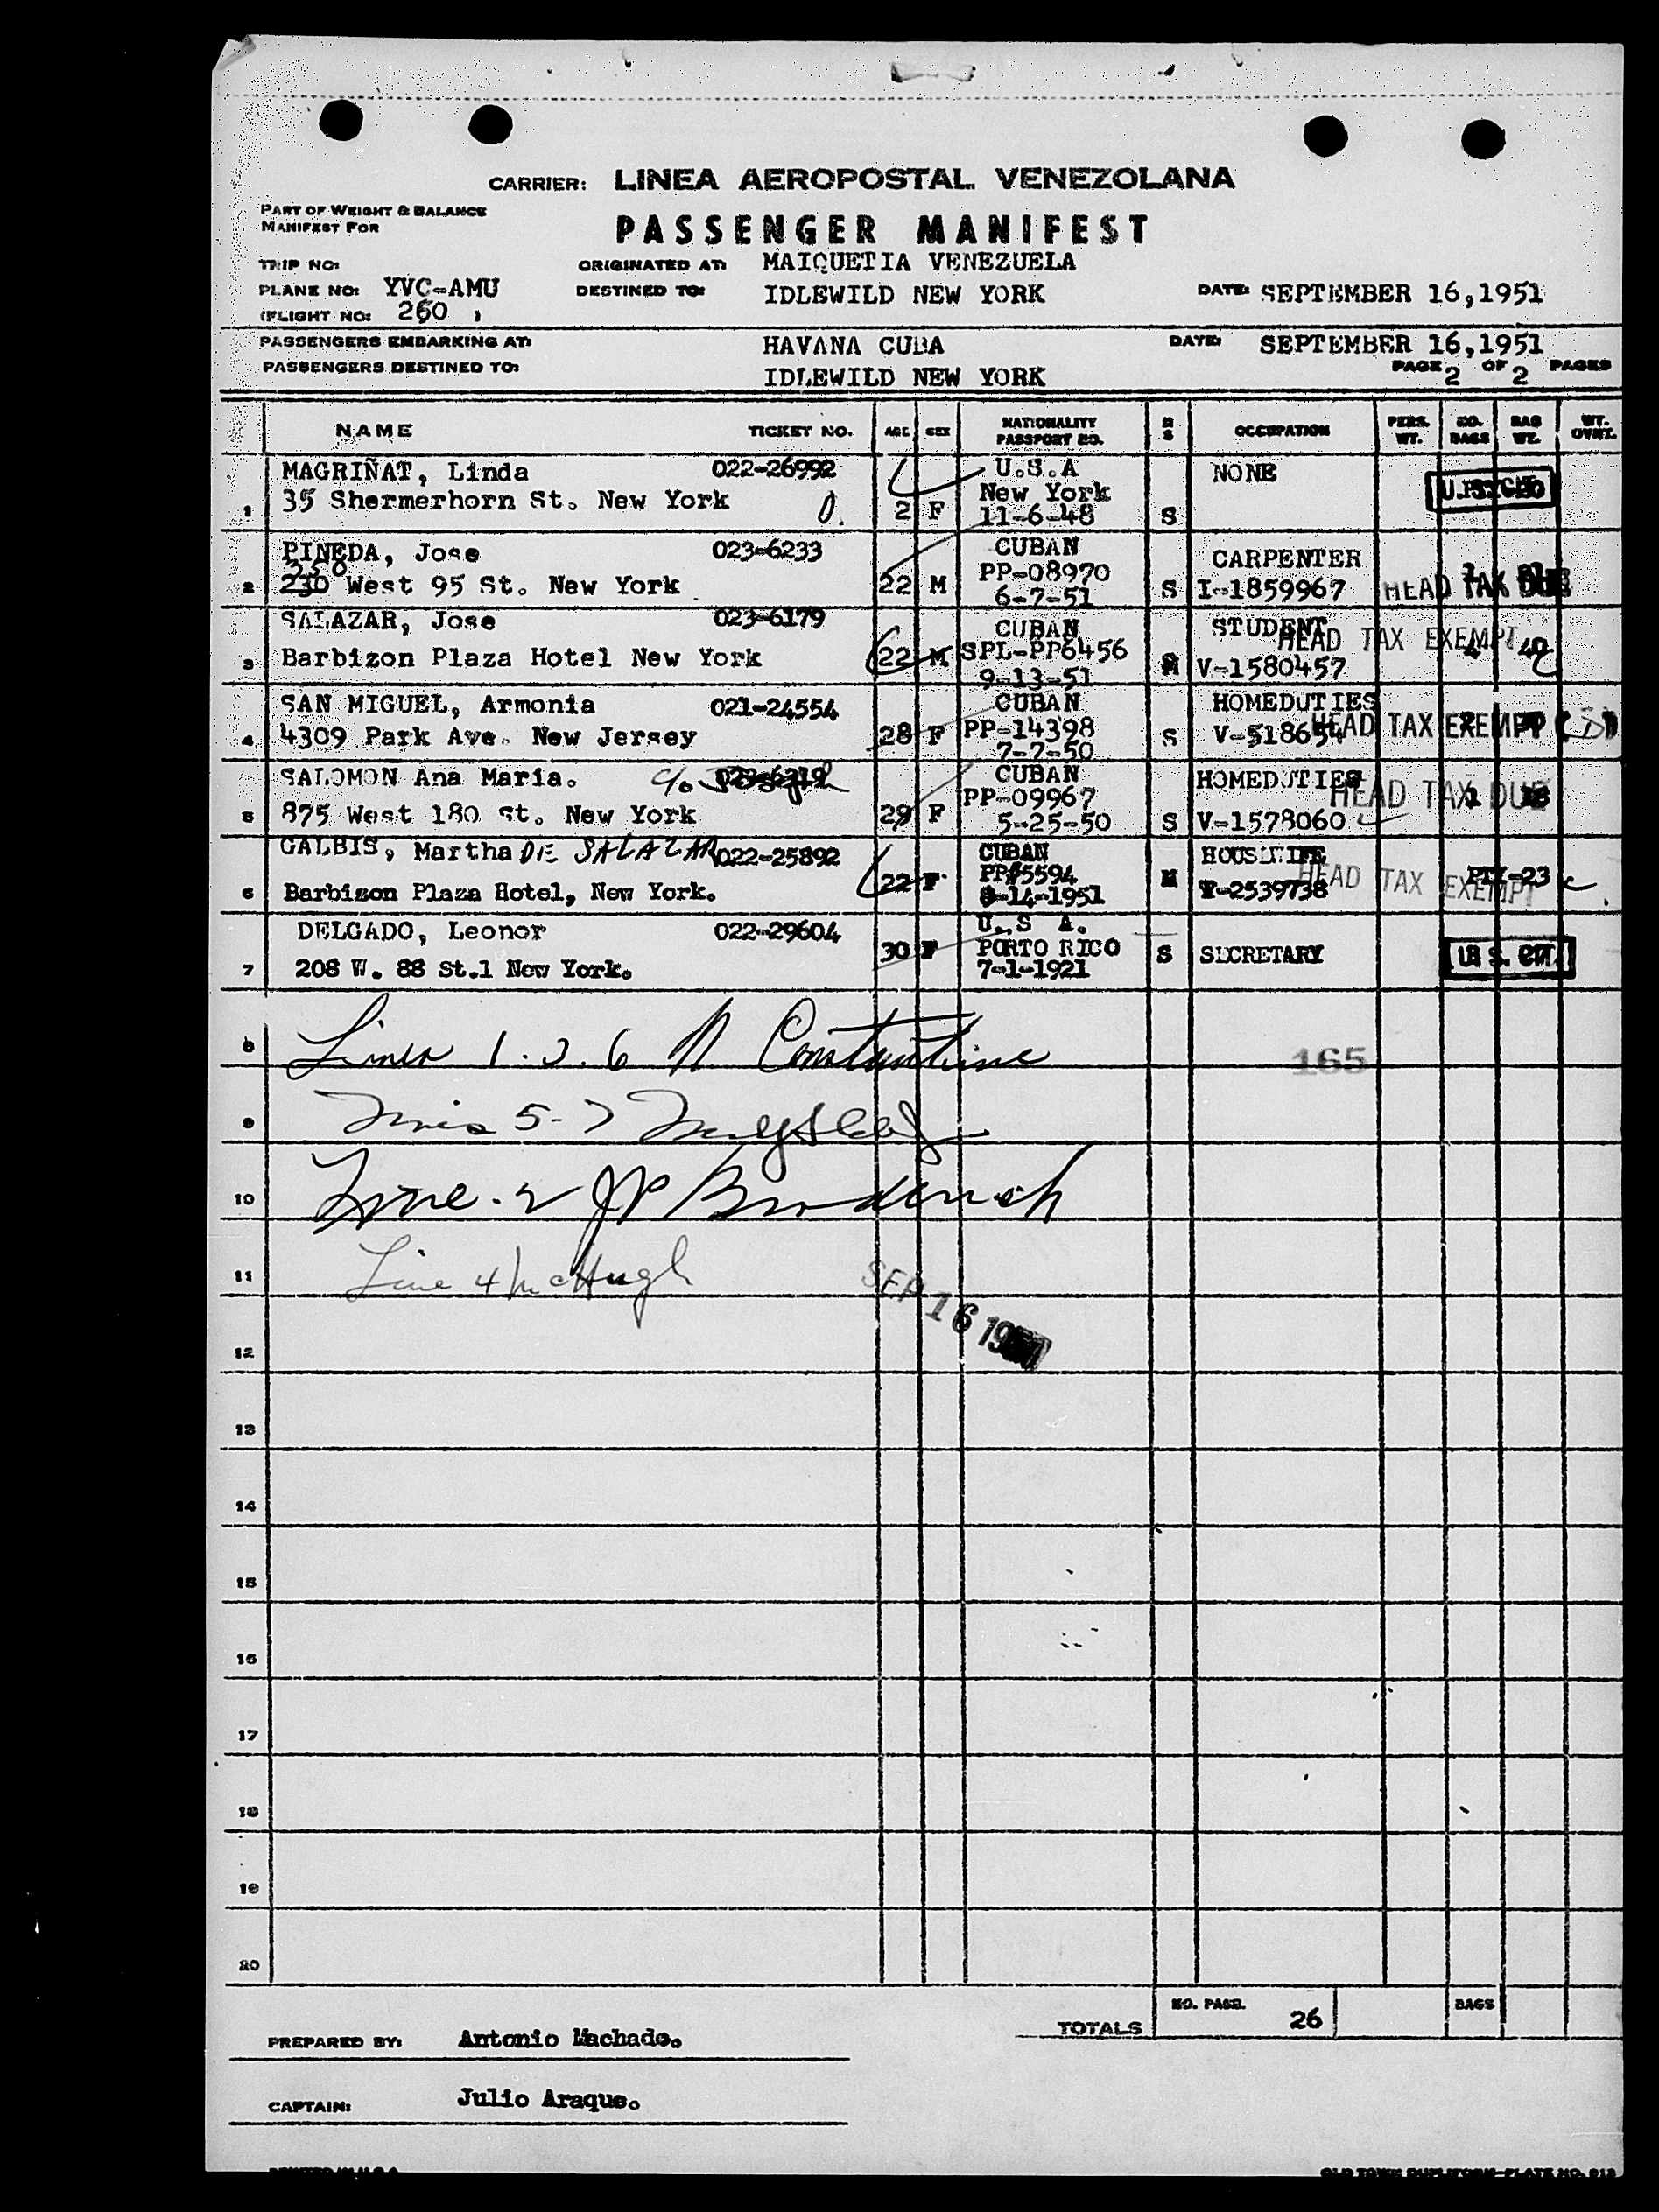 CARRIER: LINEA AEROPOSTAL VENEZOLANA
PART OF WEIGHT & BALANCE
MANIFEST FOR
PASSENGER MANIFEST
TRIP NO: ORIGINATED AT: MAIQUETIA VENEZUELA
PLANE NO: YVC-AMU DESTINED TO: IDLEWILD NEW YORK DATE: SEPTEMBER 16,1951
(FLIGHT NO: 260 )
PASSENGERS EMBARKING AT: HAVANA CUBA DATE: SEPTEMBER 16,1951
PASSENGERS DESTINED TO: IDLEWILD NEW YORK PAGE 2 OF 2 PAGES
NAME TICKET NO. AGE SEX NATIONALITY PASSPORT NO. M S OCCUPATION PERS. WT. NO. BAGS BAG WT. WT. OVNT.
MAGRIÑAT, Linda 022-26992 U.S.A NONE
35 Shermerhorn St. New York New York
1 2 F 11-6-48 S
PINEDA, Jose 023-6233 CUBAN CARPENTER
250
2 230 West 95 St. New York 22 M PP-08970 S I-1859967 HEAD TAX DUE
6-7-51
SALAZAR, Jose 023-6179 CUBAN STUDENT HEAD TAX EXEMPT
3 Barbizon Plaza Hotel New York 22 M SPL-PP6456 V-1580457
9-13-51
SAN MIGUEL, Armonia 021-24554 CUBAN HOMEDUTIES
4 4309 Park Ave. New Jersey 28 F PP-14398 S V-518654 HEAD TAX EXEMPT
7-7-50
SALOMON Ana Maria. c/o CUBAN HOMEDUTIES HEAD TAX DUE
5 875 West 180 st. New York 29 F PP-09967 S V-1578060
5-25-50
GALBIS, Martha DE SALAZAR 022-25892 CUBAN HOUSEWIFE
6 Barbizon Plaza Hotel, New York. 22 F PP#5594 M -2539738 HEAD TAX EXEMPT
-14-1951
DELGADO, Leonor 022-29604 U.S A.
7 208 W. 88 St.1 New York. 30 F PORTO RICO S SECRETARY U.S. CIT.
7-1-1921
8 Lines 1.3.6 Constantine 165
9 5-7
10 Line 2 JP Broderick
11 Line 4 McHugh SEP 16 1951
12
13
14
15
16
17
18
19
20
TOTALS NO. PASS. 26 BAGS
PREPARED BY: Antonio Machado.
CAPTAIN: Julio Araque.